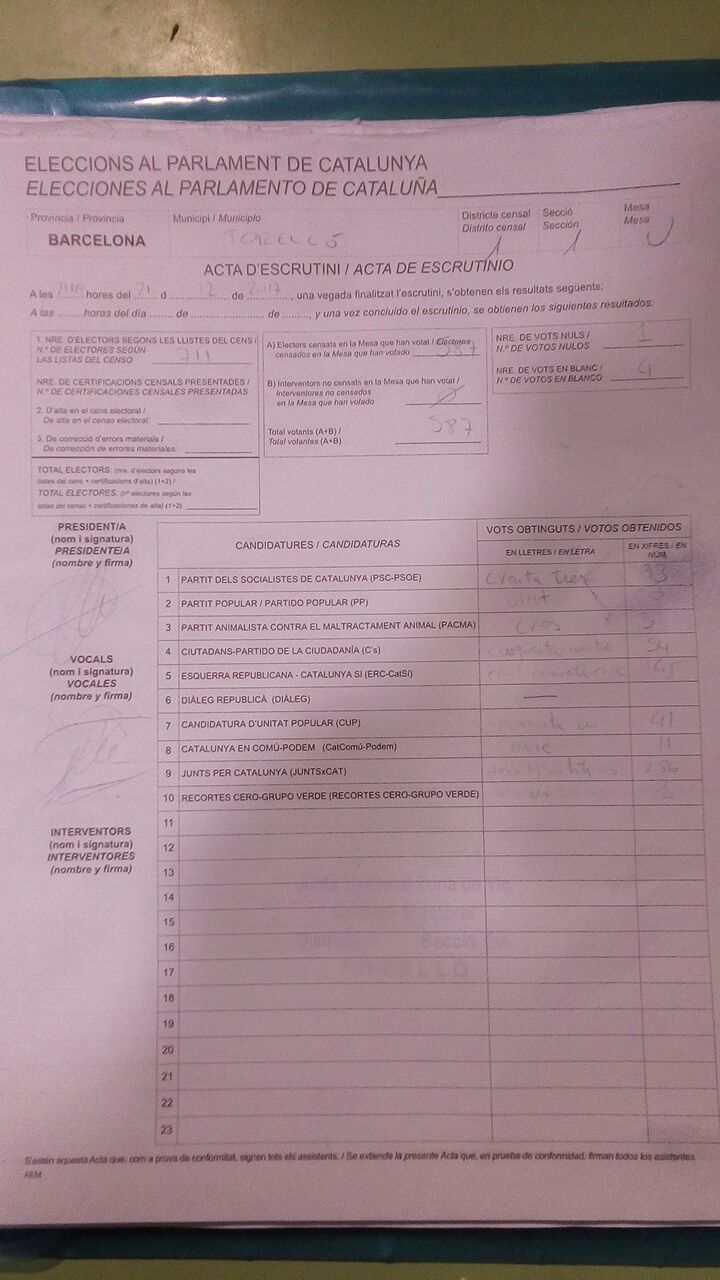 ELECCIONS AL PARLAMENT DE CATALUNYA
ELECCIONES AL PARLAMENTO DE CATALUÑA
Provincia / Provincia
Municipi / Municipio
Districte censal
Distrito censal
Secció
Sección
Mesa
Mesa
BARCELONA
TORELLÓ
1
1
U
ACTA D'ESCRUTINI / ACTA DE ESCRUTINIO
A les hores del 21 d 12 de 2017, una vegada finalitzat l'escrutini, s'obtenen els resultats següents:
A las ...... horas del día ...... de .................. de ......, y una vez concluido el escrutinio, se obtienen los siguientes resultados:
1. NRE. D'ELECTORS SEGONS LES LLISTES DEL CENS /
N.º DE ELECTORES SEGÚN
LAS LISTAS DEL CENSO 711
NRE. DE CERTIFICACIONS CENSALS PRESENTADES /
N.º DE CERTIFICACIONES CENSALES PRESENTADAS
2. D'alta en el cens electoral /
De alta en el censo electoral:
3. De correcció d'errors materials /
De corrección de errores materiales:
TOTAL ELECTORS: (nre. d'electors segons les
llistes del cens + certificacions d'alta) (1+2) /
TOTAL ELECTORES: (nº electores según las
listas del censo + certificaciones de alta) (1+2)
A) Electors censats en la Mesa que han votat / Electores
censados en la Mesa que han votado 587
B) Interventors no censats en la Mesa que han votat /
Interventores no censados
en la Mesa que han votado Ø
Total votants (A+B) /
Total votantes (A+B) 587
NRE. DE VOTS NULS /
N.º DE VOTOS NULOS 1
NRE. DE VOTS EN BLANC /
N.º DE VOTOS EN BLANCO
PRESIDENT/A
(nom i signatura)
PRESIDENTE/A
(nombre y firma)
VOCALS
(nom i signatura)
VOCALES
(nombre y firma)
INTERVENTORS
(nom i signatura)
INTERVENTORES
(nombre y firma)
CANDIDATURES / CANDIDATURAS
VOTS OBTINGUTS / VOTOS OBTENIDOS
EN LLETRES / EN LETRA
EN XIFRES / EN NÚM.
1 PARTIT DELS SOCIALISTES DE CATALUNYA (PSC-PSOE) trenta tres 33
2 PARTIT POPULAR / PARTIDO POPULAR (PP) vuit 8
3 PARTIT ANIMALISTA CONTRA EL MALTRACTAMENT ANIMAL (PACMA) tres 3
4 CIUTADANS-PARTIDO DE LA CIUDADANÍA (C's) 54
5 ESQUERRA REPUBLICANA - CATALUNYA SI (ERC-CatSí) 145
6 DIÀLEG REPUBLICÀ (DIÀLEG) —
7 CANDIDATURA D'UNITAT POPULAR (CUP) 41
8 CATALUNYA EN COMÚ-PODEM (CatComú-Podem) onze 11
9 JUNTS PER CATALUNYA (JUNTSxCAT) 286
10 RECORTES CERO-GRUPO VERDE (RECORTES CERO-GRUPO VERDE) 1
11
12
13
14
15
16
17
18
19
20
21
22
23
S'estén aquesta Acta que, com a prova de conformitat, signen tots els assistents. / Se extiende la presente Acta que, en prueba de conformidad, firman todos los asistentes.
AEM